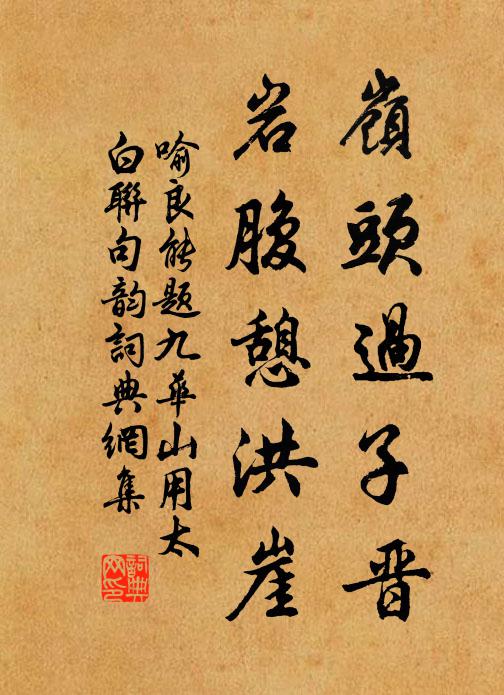 嶺頭過子晋
岩腹憩洪崖
喻良能題九華山用太
白聯句韵詞典網集
詞典网印